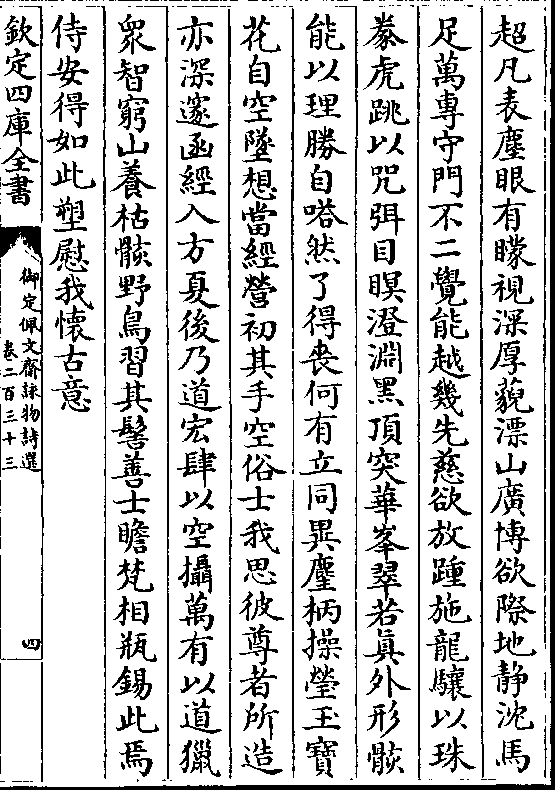 超凡表塵眼有矇視深厚藐漂山廣博欲際地静沈馬
足萬專守門不二覺能越幾先慈欲放踵施龍驤以珠
豢虎跳以咒弭目瞑澄淵黑頂突華峯翠若真外形骸
能以理勝自嗒然了得喪何有立同異麈柄操瑩玉寶
花自空墜想當經營初其手空俗士我思彼尊者所造
亦深邃函經入方夏後乃道宏肆以空攝萬有以道獵
衆智窮山養枯骸野鳥習其髻善士瞻梵相瓶錫此焉
侍安得如此塑慰我懷古意
欽定四庫全書
御定佩文齋詠物詩選
卷二百三十三
四